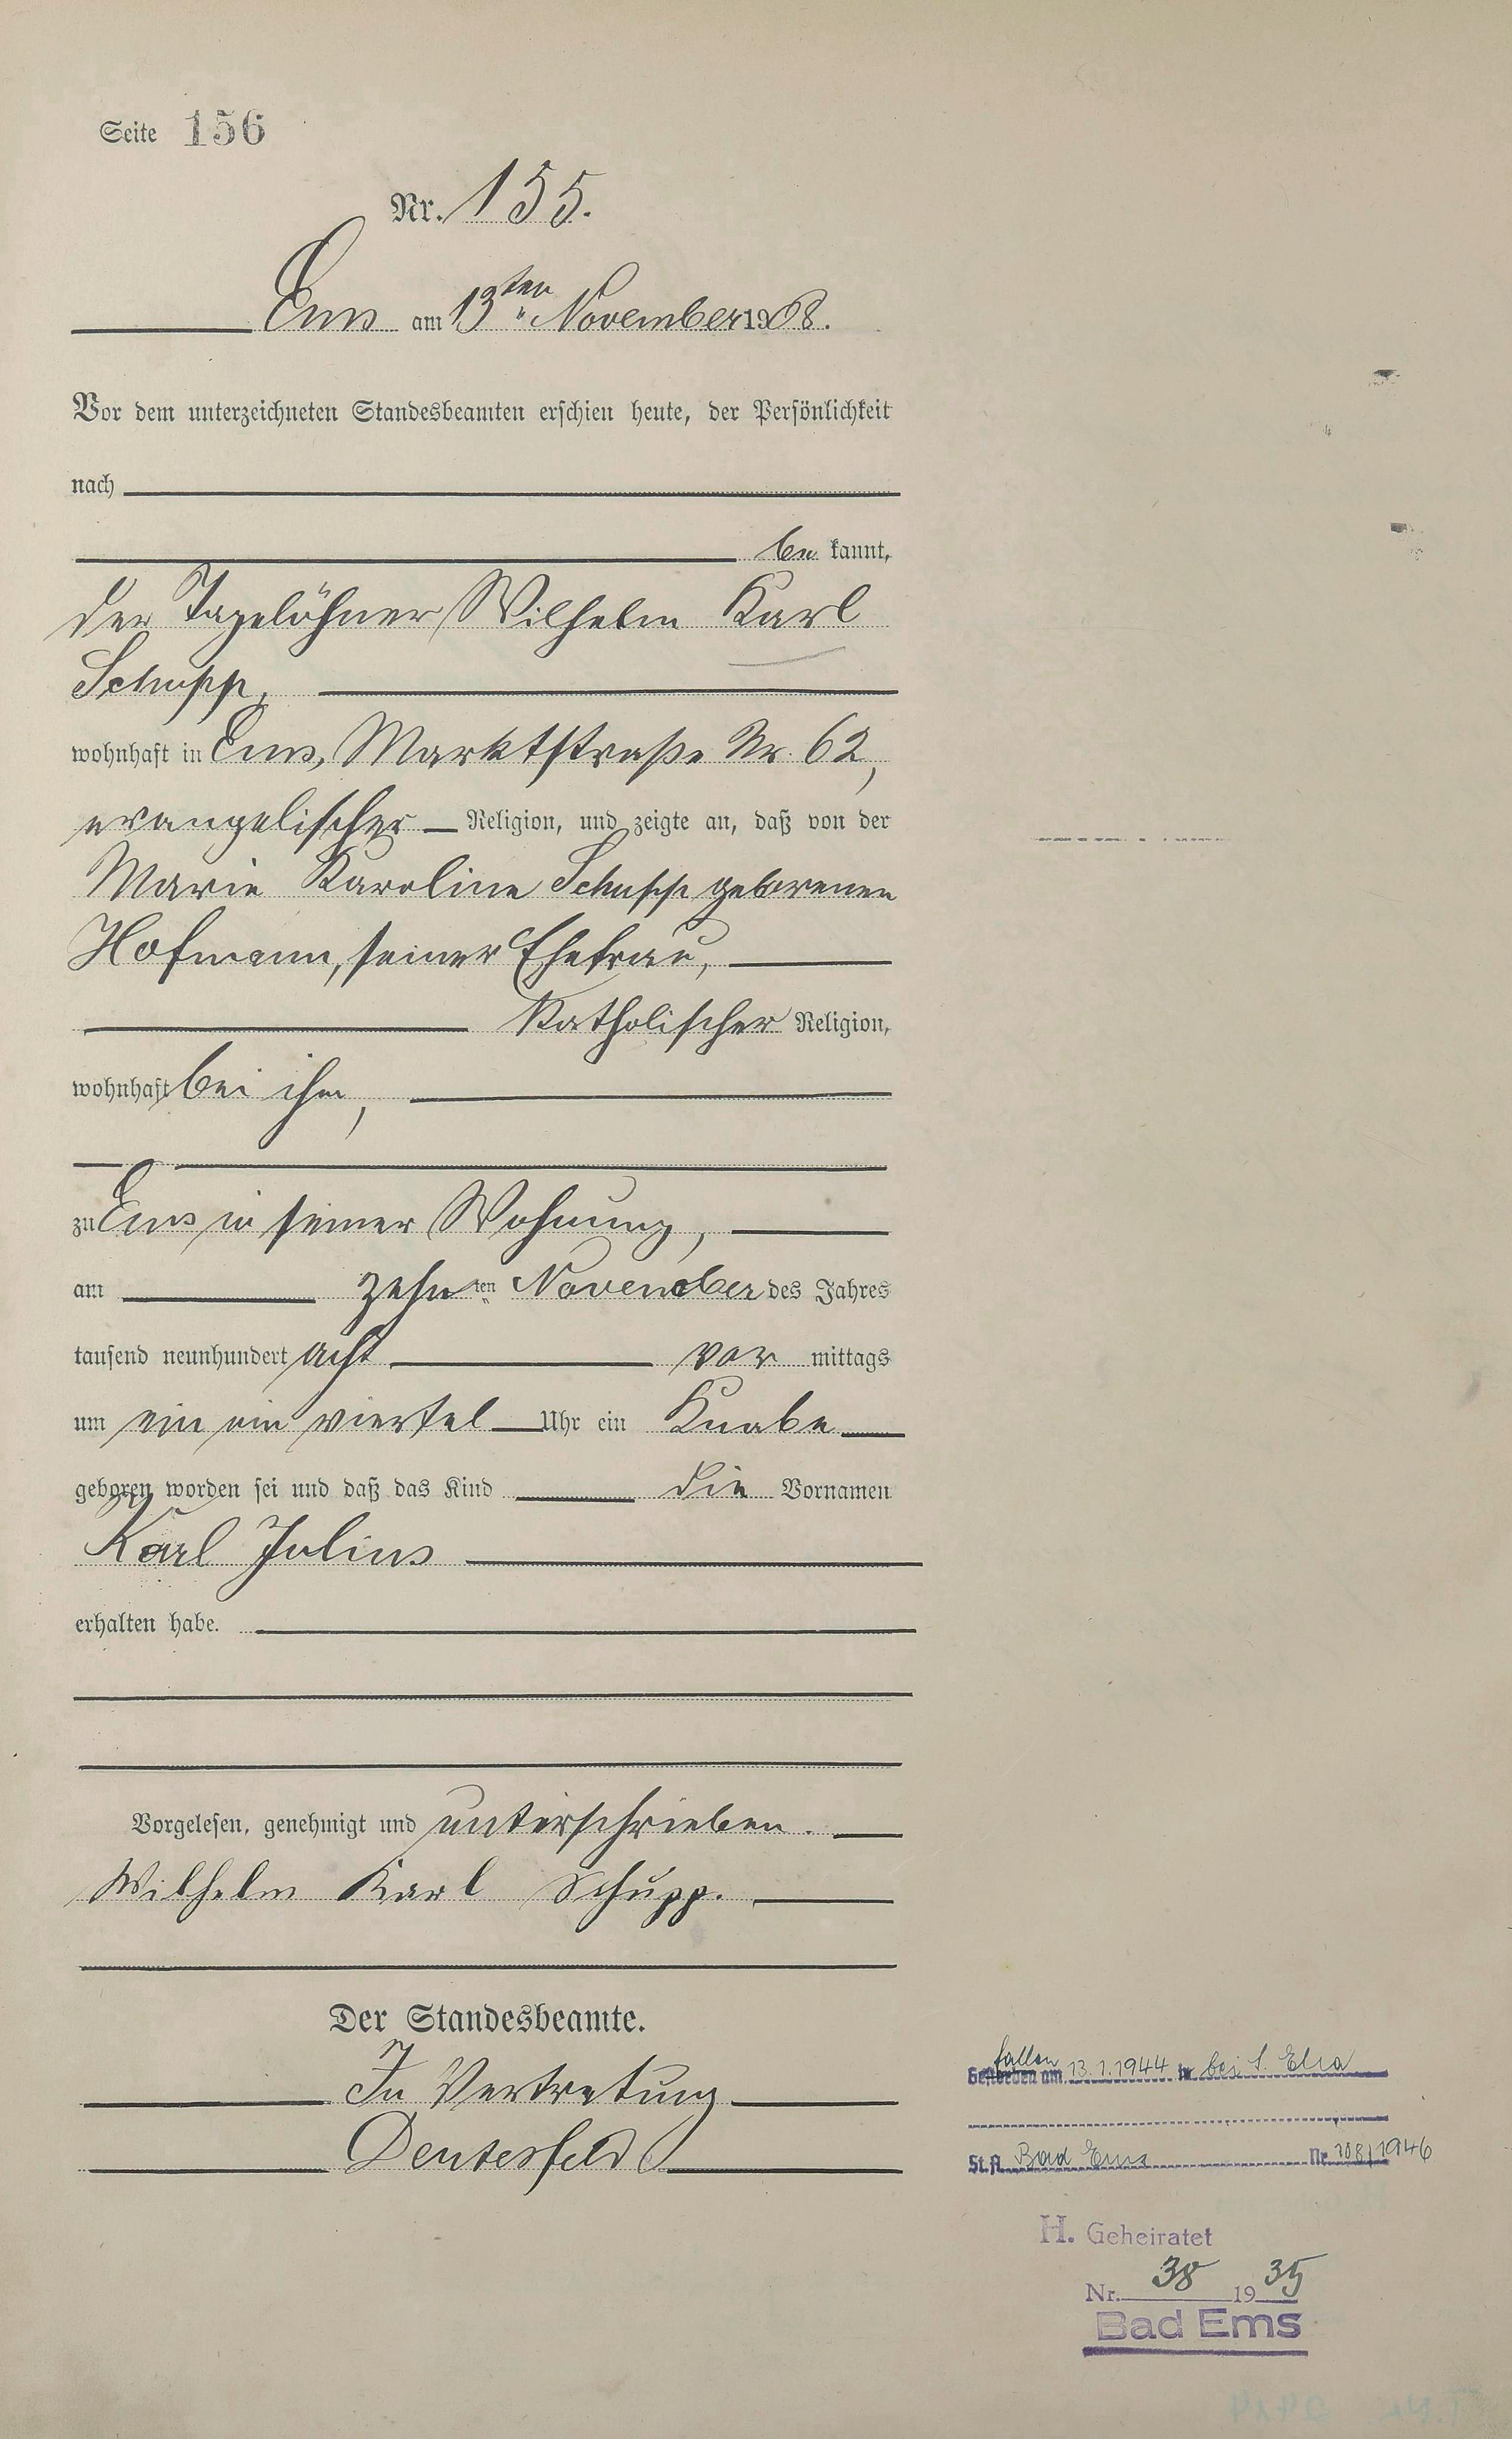 Seite 156
Nr. 155.
Ems am 13ten November 1908.
Vor dem unterzeichneten Standesbeamten erschien heute, der Persönlichkeit
nach
be kannt,
der Tagelöhner Wilhelm Karl
Schupp,
wohnhaft in Ems, Marktstraße Nr. 62,
evangelischer Religion, und zeigte an, daß von der
Marie Karoline Schupp geborenen
Hofmann, seiner Ehefrau,
katholischer Religion,
wohnhaft bei ihm,
zu Ems in seiner Wohnung,
am zehnten November des Jahres
tausend neunhundert acht vor mittags
um ein ein viertel Uhr ein Knabe
geboren worden sei und daß das Kind die Vornamen
Karl Julius
erhalten habe.
Vorgelesen, genehmigt und unterschrieben.
Wilhelm Karl Schupp.
Der Standesbeamte.
In Vertretung
Deutesfeld
fallen
Gestorben am 13.1.1944 in bei S. Elia
St.A. Bad Ems Nr. 108/1946
H. Geheiratet
Nr. 38 1935
Bad Ems